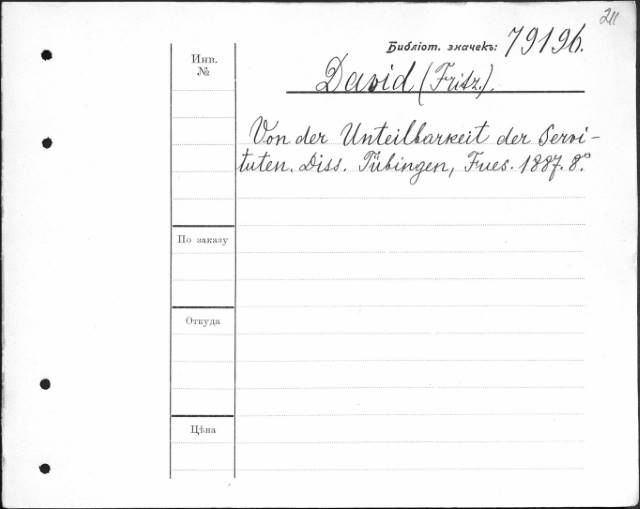 211
Библіот. значекъ: 79196.
Инв. №
David (Fritz.).
Von der Unteilbarkeit der Servi-
tuten. Diss. Tübingen, Fues. 1887. 8°
По заказу
Откуда
Цѣна